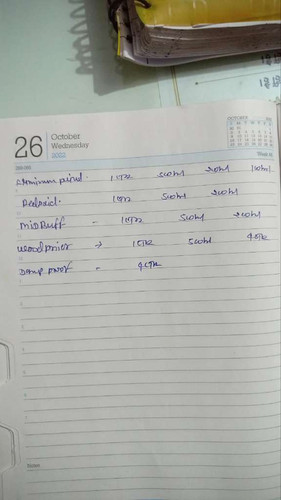 26 October
Wednesday
2022
Aluminium paint. 1LTR 500ml 200ml 100ml
Redoxid. 1LTR 500ml 200ml
MIDBuff - 1LTR 500ml 200ml
woodprior → 1LTR 500ml 4LTR
Damp proof - 4LTR
Notes